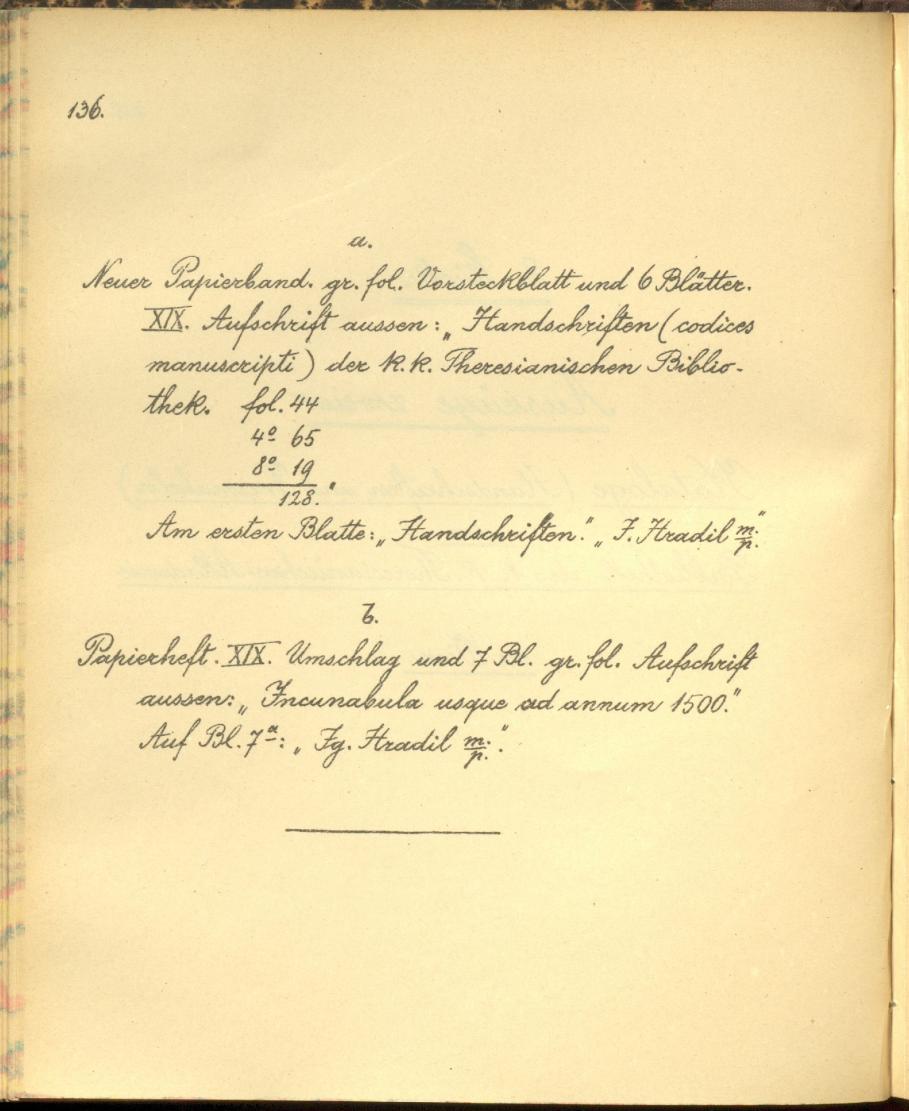 136.
a.
Neuer Papierband. gr. fol. Vorsteckblatt und 6 Blätter.
XIX. Aufschrift aussen: „Handschriften (codices
manuscripti) der k. k. Theresianischen Biblio-
thek. fol. 44
4º 65
8º 19
128."
Am ersten Blatte: „Handschriften." „J. Hradil m./p."
b.
Papierheft. XIX. Umschlag und 7 Bl. gr. fol. Aufschrift
aussen: „Incunabula usque ad annum 1500."
Auf Bl. 7ª: „Jg. Hradil m./p.".